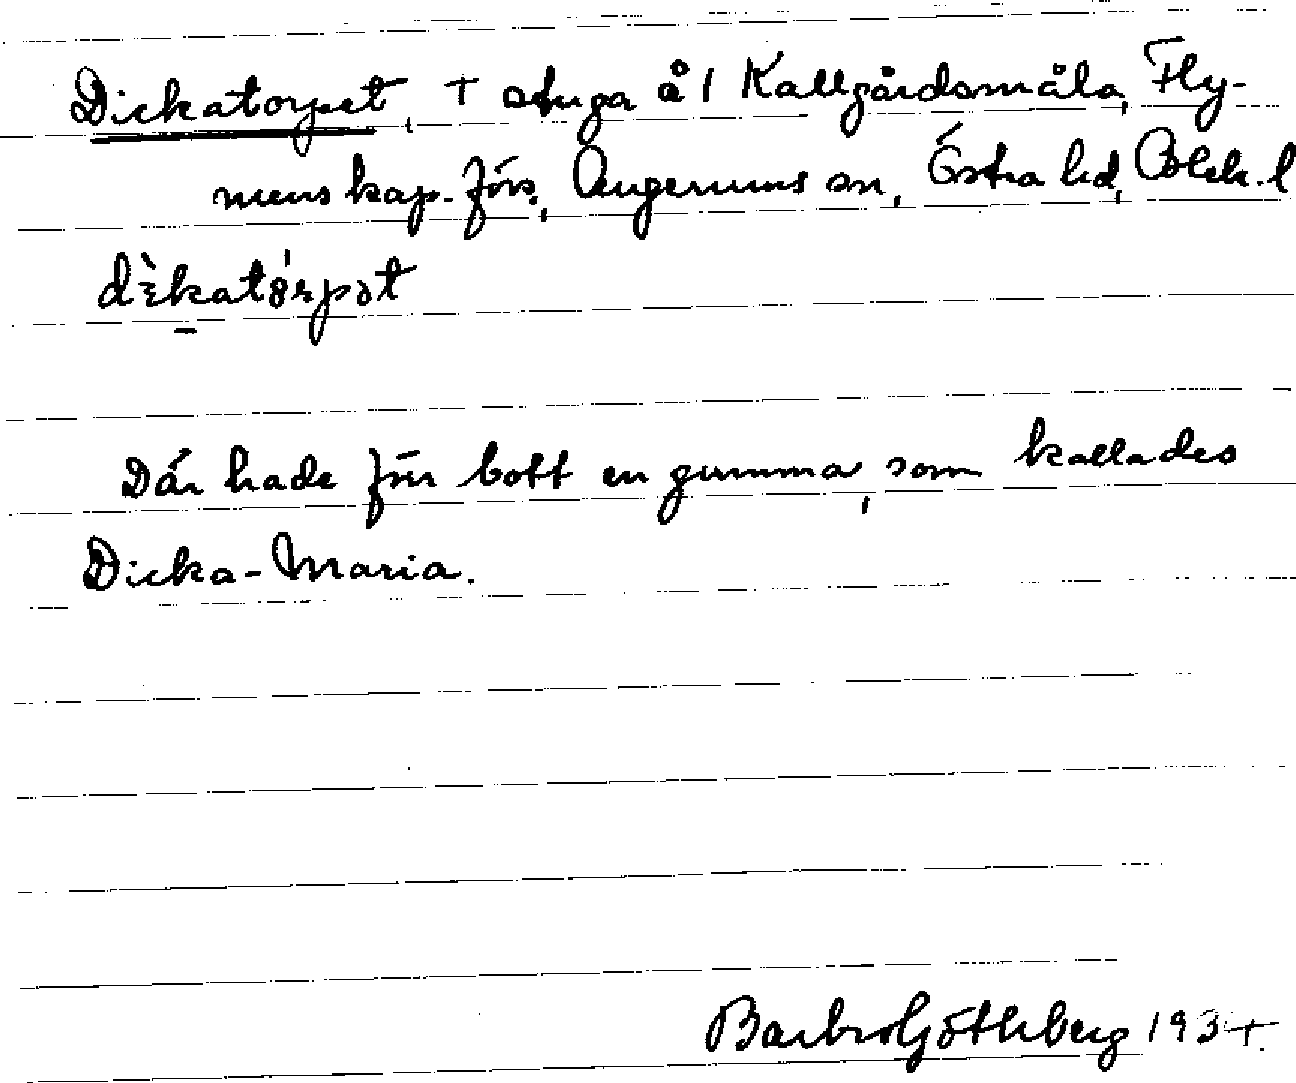 Dickatorpet, + stuga å 1 Kallgårdsmåla, Fly-
mens kap.förs., Augerums sn, Östra hd, Blek. l
Där hade förr bott en gumma, som kallades
Dicka-Maria.
Barbro Göthberg 1934.